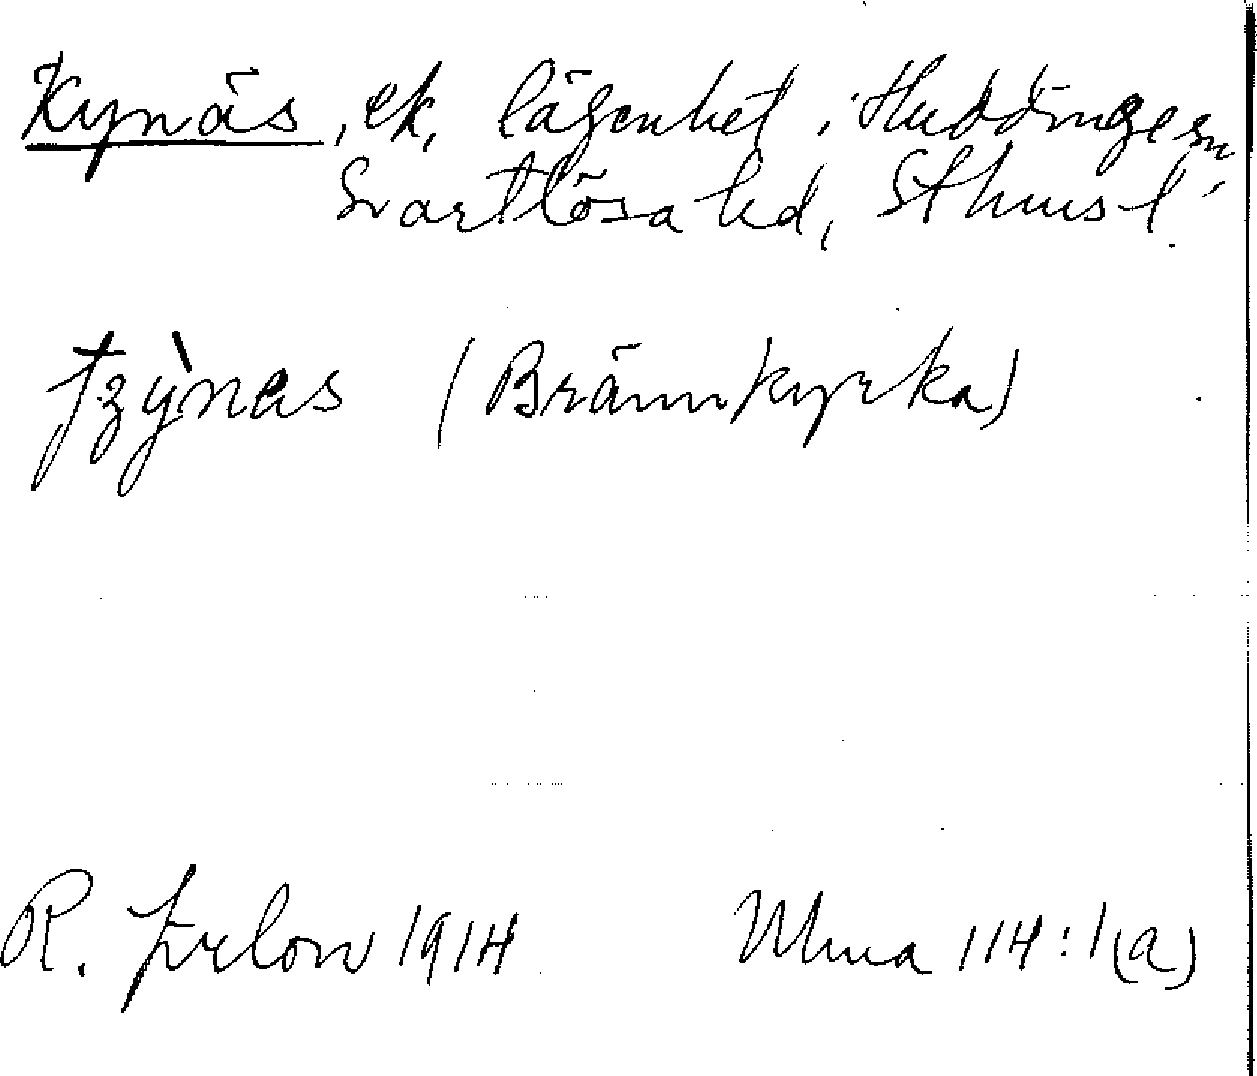 Kynäs, ek. lägenhet, Huddinge sn,
Svartlösa hd, Sthms l.
(Brännkyrka)
R. 1914 Uma 114:1(a)